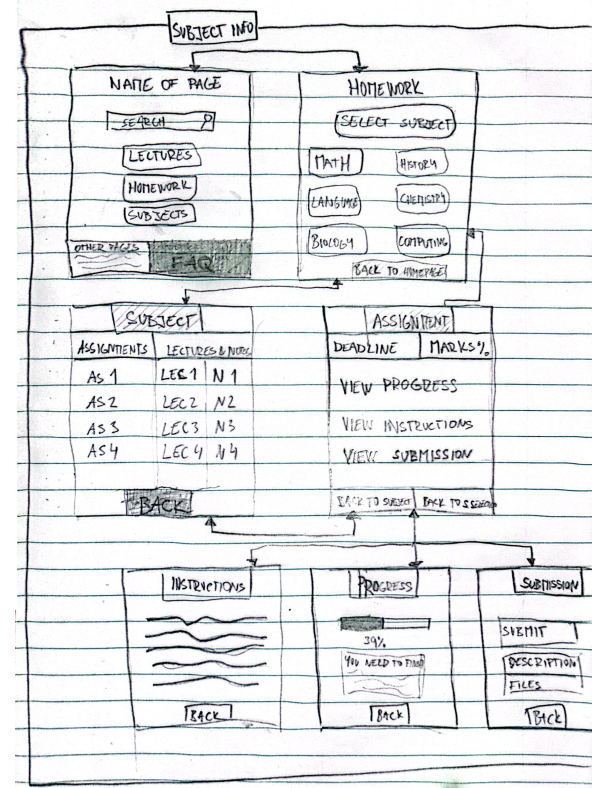 SUBJECT INFO
NAME OF PAGE
SEARCH
LECTURES
HOMEWORK
SUBJECTS
OTHER PAGES
FAQ
HOMEWORK
SELECT SUBJECT
MATH HISTORY
LANGUAGE CHEMISTRY
BIOLOGY COMPUTING
BACK TO HOMEPAGE
SUBJECT
ASSIGNMENTS LECTURES & NOTES
AS 1 LEC 1 N 1
AS 2 LEC 2 N 2
AS 3 LEC 3 N 3
AS 4 LEC 4 N 4
BACK
ASSIGNMENT
DEADLINE MARKS %
VIEW PROGRESS
VIEW INSTRUCTIONS
VIEW SUBMISSION
BACK TO SUBJECT BACK TO
INSTRUCTIONS
BACK
PROGRESS
39%
YOU NEED TO
BACK
SUBMISSION
SUBMIT
DESCRIPTION
FILES
BACK